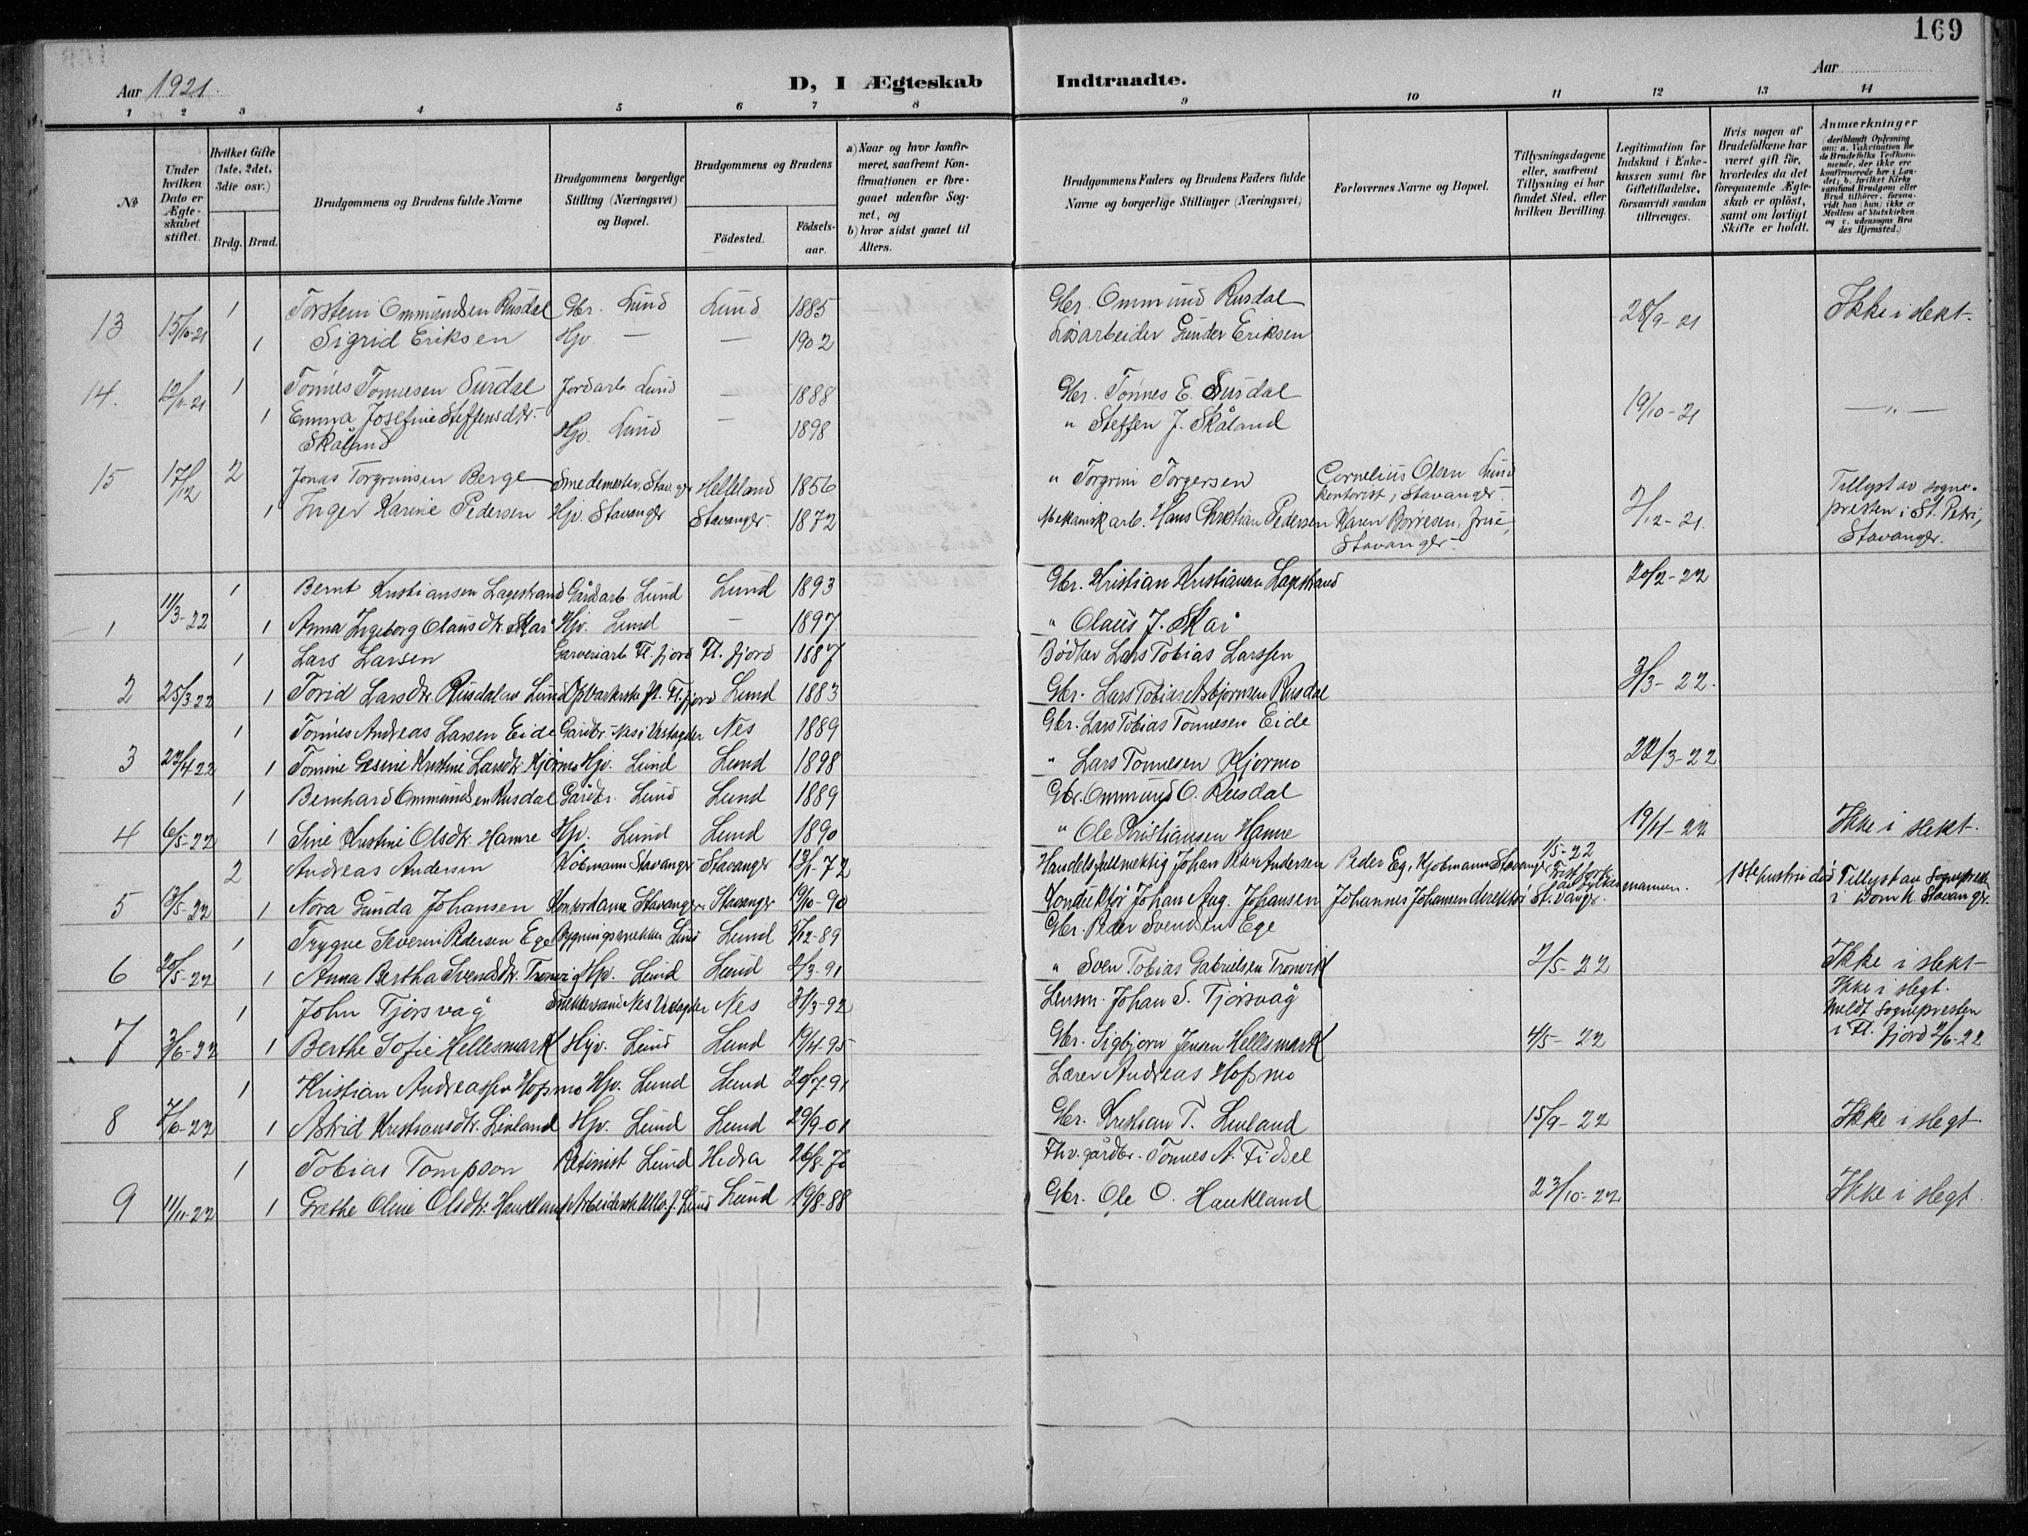 169
Aar 1921.
D, I Ægteskab Indtraadte.
Aar
1 2 3 4 5 6 7 8 9 10 11 12 13 14
№
Under hvilken Dato er Ægteskabet stiftet.
Hvilket Gifte (1ste, 2det, 3die osv.)
Brdg. Brud.
Brudgommens og Brudens fulde Navne
Brudgommens borgerlige Stilling (Næringsvei) og Bopæl.
Brudgommens og Brudens
Födested.
Födselsaar.
a) Naar og hvor konfirmeret, saafremt Konfirmationen er foregaaet udenfor Sognet, og
b) hvor sidst gaaet til Alters.
Brudgommens Faders og Brudens Faders fulde Navne og borgerlige Stillinger (Næringsvei)
Forlovernes Navne og Bopæl.
Tillysningsdagene eller, saafremt Tillysning ei har fundet Sted, efter hvilken Bevilling.
Legitimation for Indskud i Enkekassen samt for Giftetilladelse, forsaavidt saadan tiltrænges.
Hvis nogen af Brudefolkene har været gift för, hvorledes da det foregaaende Ægteskab er oplöst, samt om lovligt Skifte er holdt.
Anmærkninger (deriblandt Oplysning om: a. Vakcination for de Brudefolks Vedkommende, der ikke ere konfirmerede her i Landet; b. hvilket Kirkesamfund Brudgom eller Brud tilhörer, forsaavidt han (hun) ikke er Medlem af Statskirken og c. udensogns Brudes Hjemsted.)
13 15/10-21 1 Torstein Ommundsen Rusdal Gbr. Lund Lund 1885 Gbr. Ommund Rusdal 28/9-21 Ikke i slekt.
1 Sigrid Eriksen Hjv. — — 1902 Løsarbeider Gunder Eriksen
14. 12/11-21 1 Tønnes Tønnesen Surdal Jordarb. Lund — 1888 Gbr. Tønnes E. Surdal 19/10-21 — " —
1 Emma Josefine Steffensdtr. Skåland Hjv. Lund — 1898 " Steffen J. Skåland
15 17/12 2 Jonas Torgrimsen Berge Smedemester, Stav.ger Helleland 1856 " Torgrim Torgersen Cornelius Olsen Lund kontorist, Stavanger. 2/12-21. Tillyst av sognepresten i St. Petri, Stavanger.
1 Inger Karine Pedersen Hjv. Stavanger Stavanger. 1872 Mekanisk arb. Hans Christian Pedersen Karen Børresen, frue, Stavanger.
1 11/3-22 1 Bernt Kristiansen Lagestrand Gårdarb. Lund Lund 1893 Gbr. Kristian Kristiansen Lagestrand 20/2-22
1 Anna Ingeborg Olausdtr. Skår Hjv. Lund — 1897 " Olaus J. Skår
2 25/3 22 1 Lars Larsen Garveriarb. Fl. fjord Fl. fjord 1887 Bødker Lars Tobias Larssen 3/3-22.
1 Torid Larsdtr. Rusdal av Lund Lund 1883 Gbr. Lars Tobias Asbjørnsen Rusdal
3 22/4 22 1 Tønnes Andreas Larsen Eide Gårdbr. Nes i Vestagder Nes 1889 Gbr. Lars Tobias Tønnesen Eide 22/3-22
1 Tomine Gesine Kristine Larsdtr. Kjørmo Hjv. Lund Lund 1898 " Lars Tønnesen Kjørmo
4 6/5-22 1 Bernhard Ommundsen Rusdal Gårdbr. Lund Lund 1889 Gbr. Ommund O. Rusdal 19/4-22 Ikke i slekt.
1 Sine Kristine Olsdtr. Hamre Hjv. Lund Lund 1890 " Ole Kristiansen Hamre
5 13/5-22 2 Andreas Andersen Købmann Stavanger Stavanger 13/1-72 Handelsfullmektig Johan Peter Andersen Peder Eg, Kjøbmann Stavanger 1/5-22 av fylkesmannen. 1ste hustru død Tillyst av Sognepresten i Domk. Stavanger
1 Nora Gunda Johansen Kontordame Stavanger. Stavanger 19/10-90 Konduktør Johan Aug. Johansen Johannes Johansen direktør St.vanger.
6 20/5-22 1 Trygve Severin Pedersen Ege Bygningssnekker Lund Lund 7/12-89 Gbr. Peder Svendsen Ege 2/5-22 Ikke i slekt
1 Anna Bertha Svendsdtr. Tronvig Hjv. Lund Lund 2/3-91 " Sven Tobias Gabrielsen Tronvik
7 3/6-22 1 John Tjørsvåg Nes Vestagder Nes 31/3-92 Lensm. Johan S. Tjørsvåg 4/5-22 Ikke i slegt. Meldt Sognepresten i Fl. fjord 2/6-22
1 Berthe Sofie Hellesmark Hjv. Lund Lund 19/4-95 Gbr. Sigbjørn Jensen Hellesmark
8 7/6-22 1 Kristian Andreassen Hofsmo Hjv. Lund Lund 20/7-91 Lærer Andreas Hofsmo 15/9-22 Ikke i slegt
1 Astrid Kristiansdtr. Linland Hjv. Lund Lund 29/9-01 Gbr. Kristian T. Linland
9 11/11-22 1 Tobias Tompson Lund Hidra 26/8-76 Fhv. gårdbr. Tønnes A. Fidsel 23/10-22 Ikke i slegt.
1 Grethe Oline Olsdtr. Haukland Arbeiderske Lund Lund 19/8-88 Gbr. Ole O. Haukland